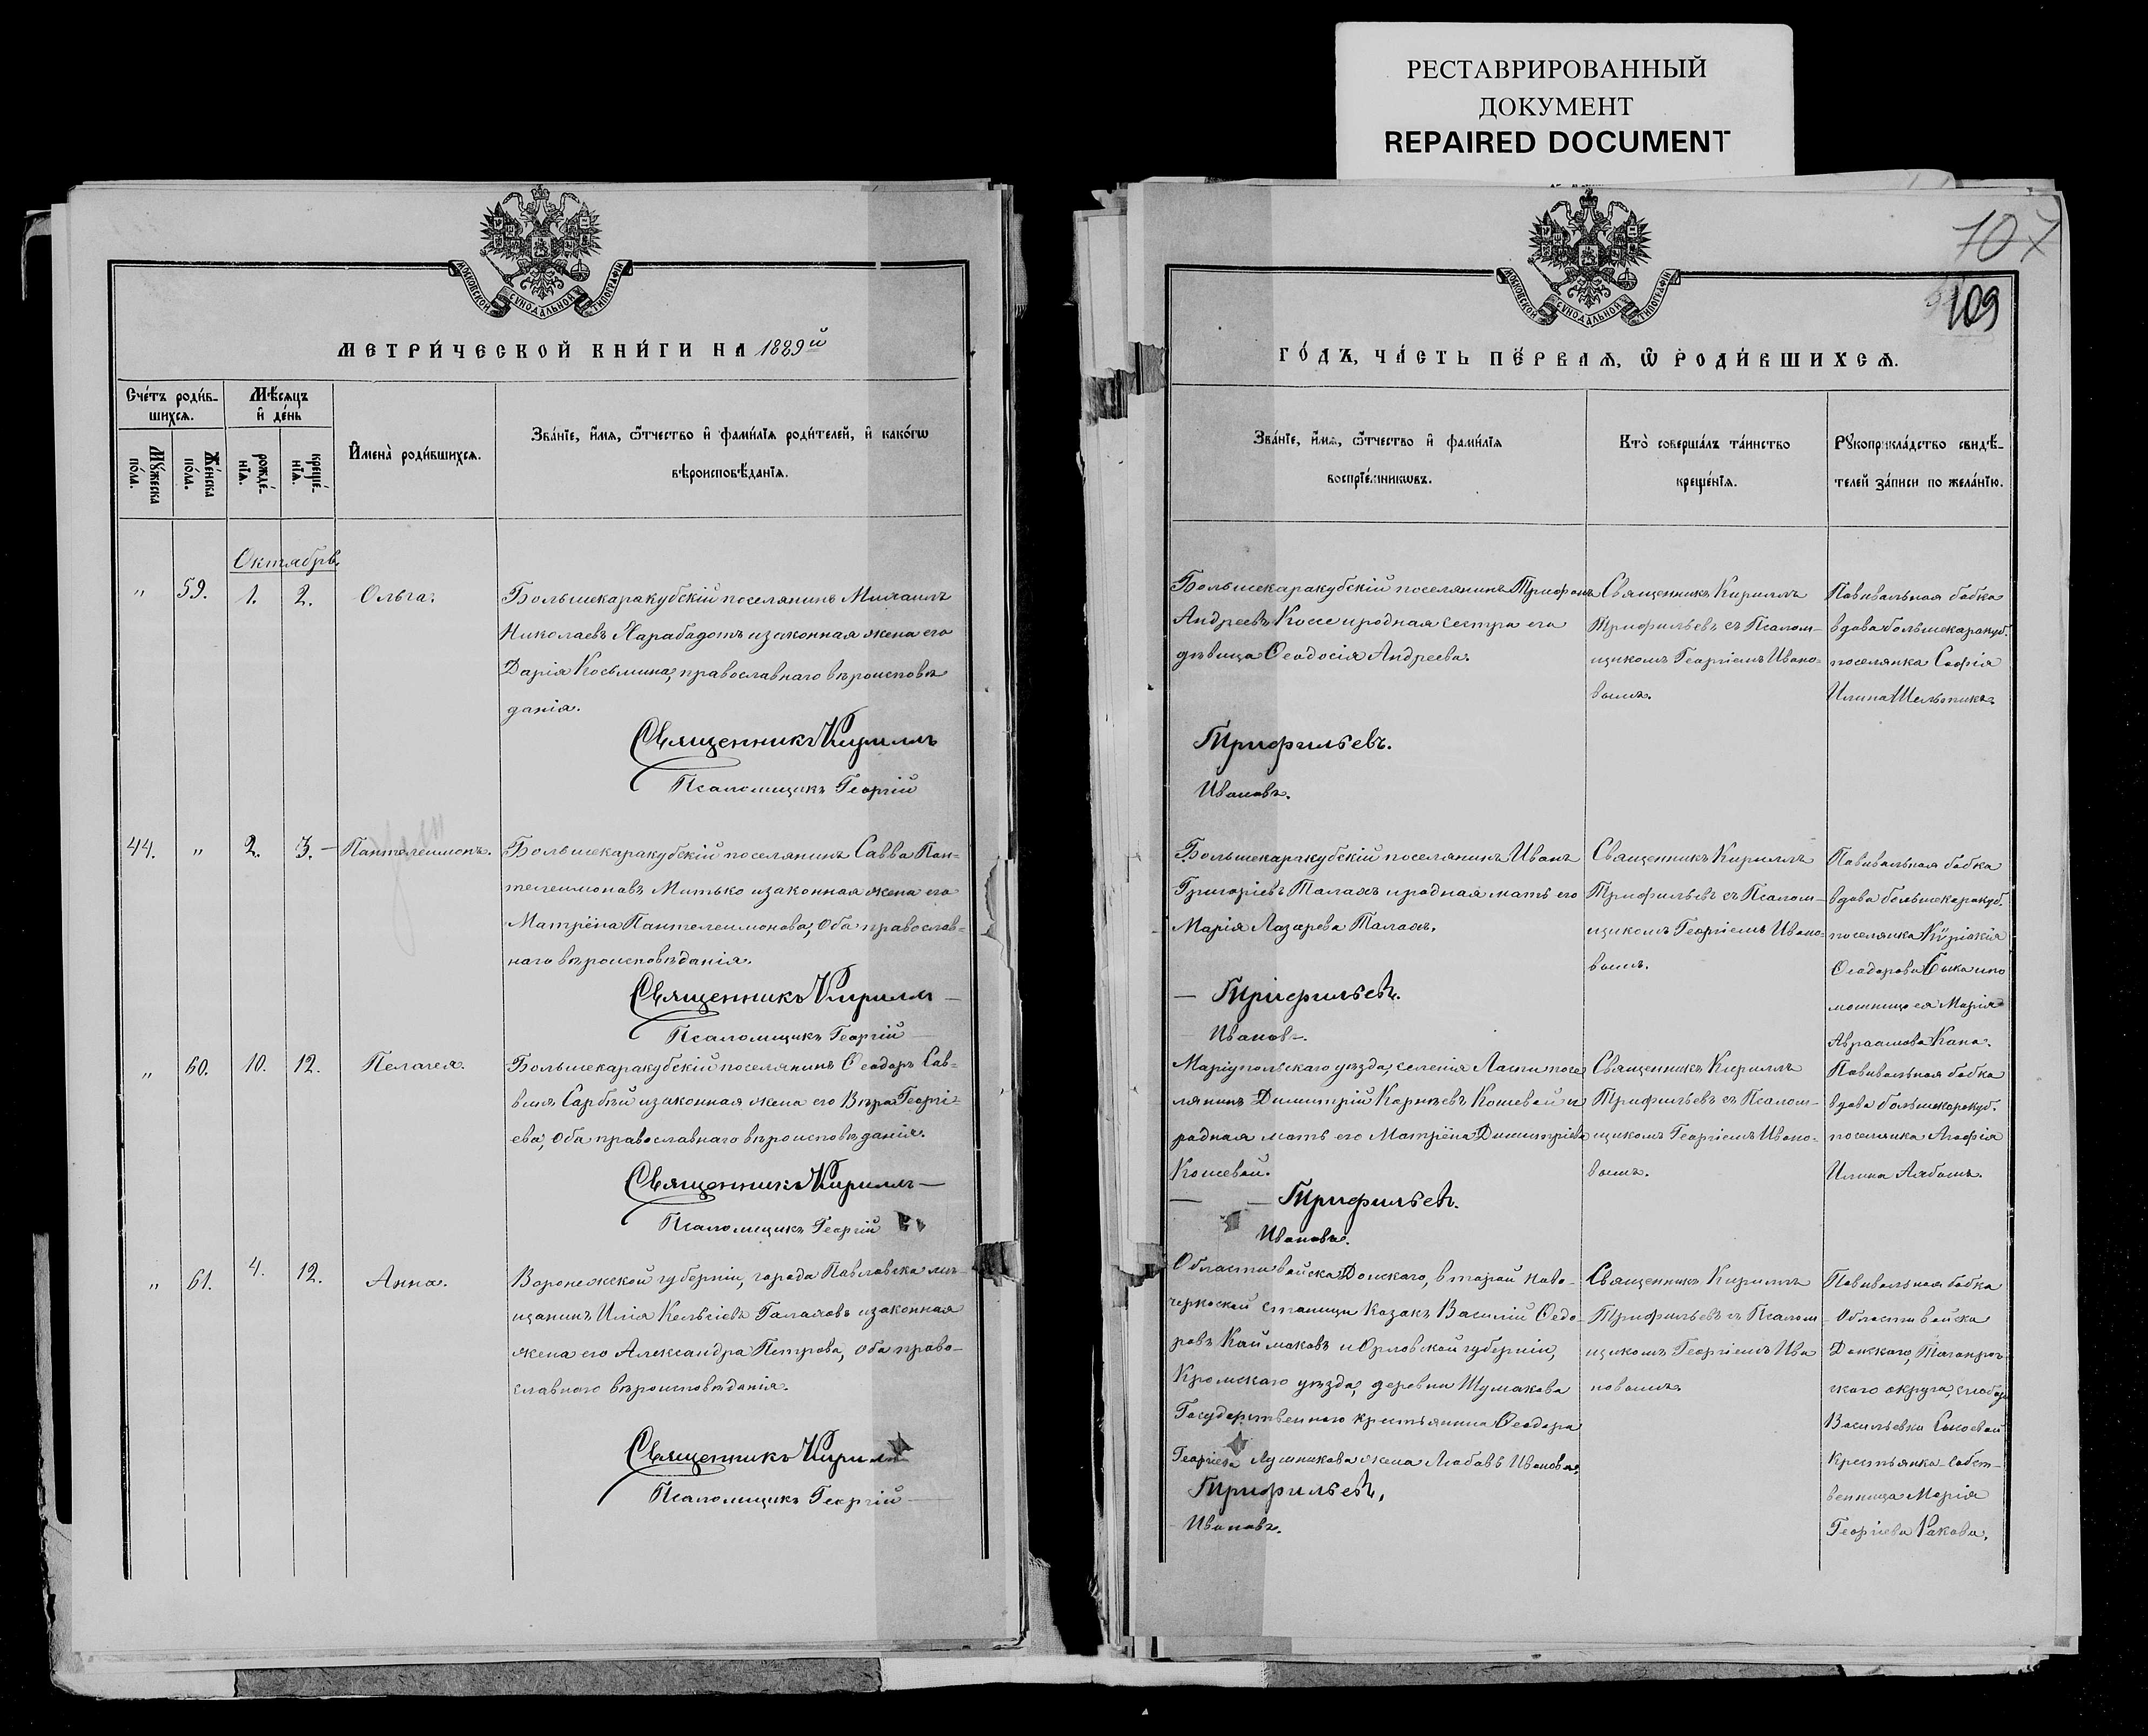 РЕСТАВРИРОВАННЫЙ
ДОКУМЕНТ
REPAIRED DOCUMENT
107
109
МОСКОВСКОЙ СѴНОДАЛЬНОЙ ТИПОГРАФІИ
МЕТРИ́ЧЕСКОЙ КНИ́ГИ НА 1889й
Сче́тъ роди́в-
шихсѧ.
Мѣ́сѧцъ
и҆ де́нь
Мꙋ́жеска
по́ла.
Же́нска
по́ла.
рожде́-
нїѧ.
креще́-
нїѧ.
И҆мена̀ роди́вшихсѧ.
Зва́нїе, и҆́мѧ, ѻ҆́тчество и҆ фами́лїѧ роди́телей, и҆ како́гѡ
вѣроисповѣ́данїѧ.
Октябрь
" 59. 1. 2. Ольга.
Большекаракубскій поселянинъ Михаилъ
Николаевъ Харабадотъ и законная жена его
Дарія Косьмина, православнаго вѣроисповѣ
данія.
Священникъ Кириллъ
Псаломщикъ Георгій
44. " 2. 3. Пантелеимонъ.
Большекаракубскій поселянинъ Савва Пан-
телеимоновъ Митько и законная жена его
Матрёна Пантелеимонова, оба православ-
наго вѣроисповѣданія.
Священникъ Кириллъ
Псаломщикъ Георгій
" 60. 10. 12. Пелагея.
Большекаракубскій поселянинъ Ѳеодоръ Сав-
винъ Сарбѣй и законная жена его Вѣра Георгі-
ева, оба православнаго вѣроисповѣданія.
Священникъ Кириллъ
Псаломщикъ Георгій
" 61. 4. 12. Анна.
Воронежской губерніи, города Павловска мѣ-
щанинъ Илія Кельсіевъ Галаховъ и законная
жена его Александра Петрова, оба право-
славнаго вѣроисповѣданія.
Священникъ Кириллъ
Псаломщикъ Георгій
МОСКОВСКОЙ СѴНОДАЛЬНОЙ ТИПОГРАФІИ
ГО́ДЪ, ЧА́СТЬ ПЕ́РВАѦ, Ѡ҆ РОДИ́ВШИХСѦ.
Зва́нїе, и҆́мѧ, ѻ҆́тчество и҆ фами́лїѧ
воспрїе́мникѡвъ.
Кто̀ соверша́лъ та́инство
креще́нїѧ.
Рꙋкоприкла́дство свидѣ́-
телей за́писи по жела́нїю.
Большекаракубскій поселянинъ Трифонъ
Андреевъ Коссе и родная сестра его
дѣвица Ѳеодосія Андреева.
Священникъ Кириллъ
Трифильевъ съ Псалом-
щикомъ Георгіемъ Ивано-
вымъ.
Повивальная бабка
вдова большекаракуб.
поселянка Софія
Ильина Мельникъ.
Трифильевъ.
Ивановъ.
Большекаракубскій поселянинъ Иванъ
Григоріевъ Талахъ и родная мать его
Марія Лазарева Талахъ.
Священникъ Кириллъ
Трифильевъ съ Псалом-
щикомъ Георгіемъ Ивано-
вымъ.
Повивальная бабка
вдова большекаракуб.
поселянка Кѵріакія
Ѳеодорова и по
мощница ея Марія
Авраамова Капа.
Трифильевъ.
Ивановъ.
Маріупольскаго уѣзда, селенія Ласпи посе
лянинъ Димитрій Корнѣевъ Кошевой и
родная мать его Матрёна Димитріева
Кошевой.
Священникъ Кириллъ
Трифильевъ съ Псалом-
щикомъ Георгіемъ Ивано-
вымъ.
Повивальная бабка
вдова большекаракуб.
поселянка Агафія
Ильина
Трифильевъ.
Ивановъ.
Области войска Донскаго, второй Ново-
черкаской станицы Казакъ Василій Ѳедо-
ровъ Каймаковъ и Орловской губерніи,
Кромскаго уѣзда, деревни Шумакова
Государственного крестьянина Ѳеодора
Георгіева Лушникова жена Любовь Иванова.
Священникъ Кириллъ
Трифильевъ съ Псалом
щикомъ Георгіемъ Ива
новымъ.
Повивальная бабка
Области войска
Донскаго, Таганрог-
скаго округа, слобод
Васильевки
Крестьянка-собст-
венница Марія
Георгіева Ракова.
Трифильевъ.
Ивановъ.